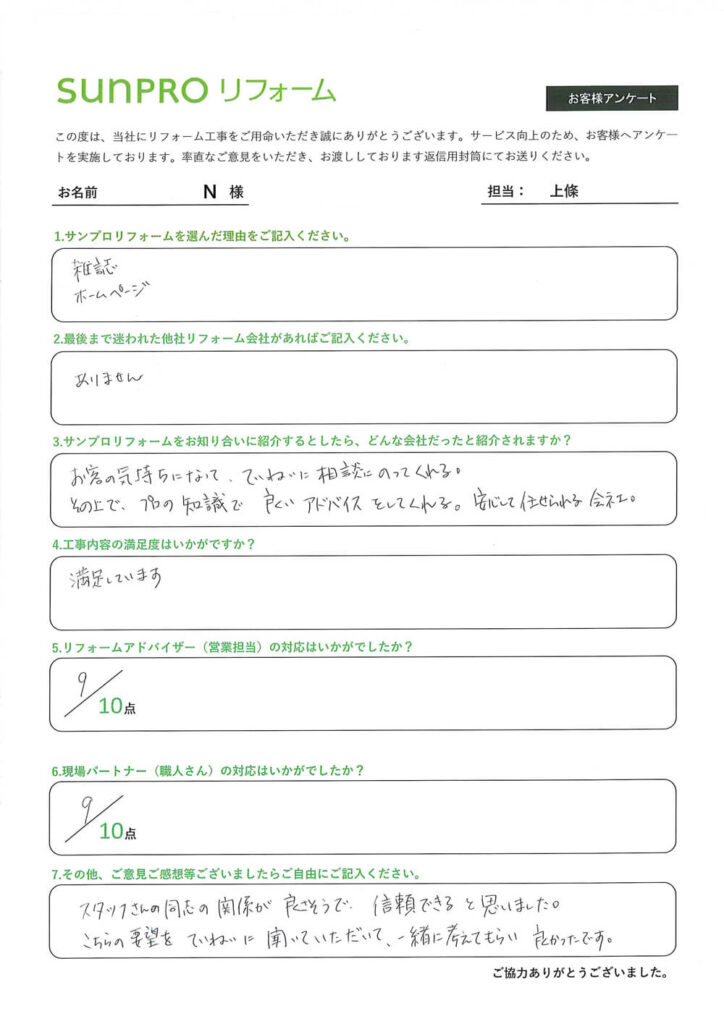 SUNPRO リフォーム
お客様アンケート
この度は、当社にリフォーム工事をご用命いただき誠にありがとうございます。サービス向上のため、お客様へアンケー
トを実施しております。率直なご意見をいただき、お渡ししております返信用封筒にてお送りください。
お名前 N 様 担当： 上條
1.サンプロリフォームを選んだ理由をご記入ください。
雑誌
ホームページ
2.最後まで迷われた他社リフォーム会社があればご記入ください。
ありません
3.サンプロリフォームをお知り合いに紹介するとしたら、どんな会社だったと紹介されますか？
お客の気持ちになって、ていねいに相談にのってくれる。
その上で、プロの知識で良いアドバイスをしてくれる。安心して任せられる会社。
4.工事内容の満足度はいかがですか？
満足しています
5.リフォームアドバイザー（営業担当）の対応はいかがでしたか？
9/10点
6.現場パートナー（職人さん）の対応はいかがでしたか？
9/10点
7.その他、ご意見ご感想等ございましたらご自由にご記入ください。
スタッフさんの同志の関係が良さそうで、信頼できると思いました。
こちらの要望をていねいに聞いていただいて、一緒に考えてもらい良かったです。
ご協力ありがとうございました。